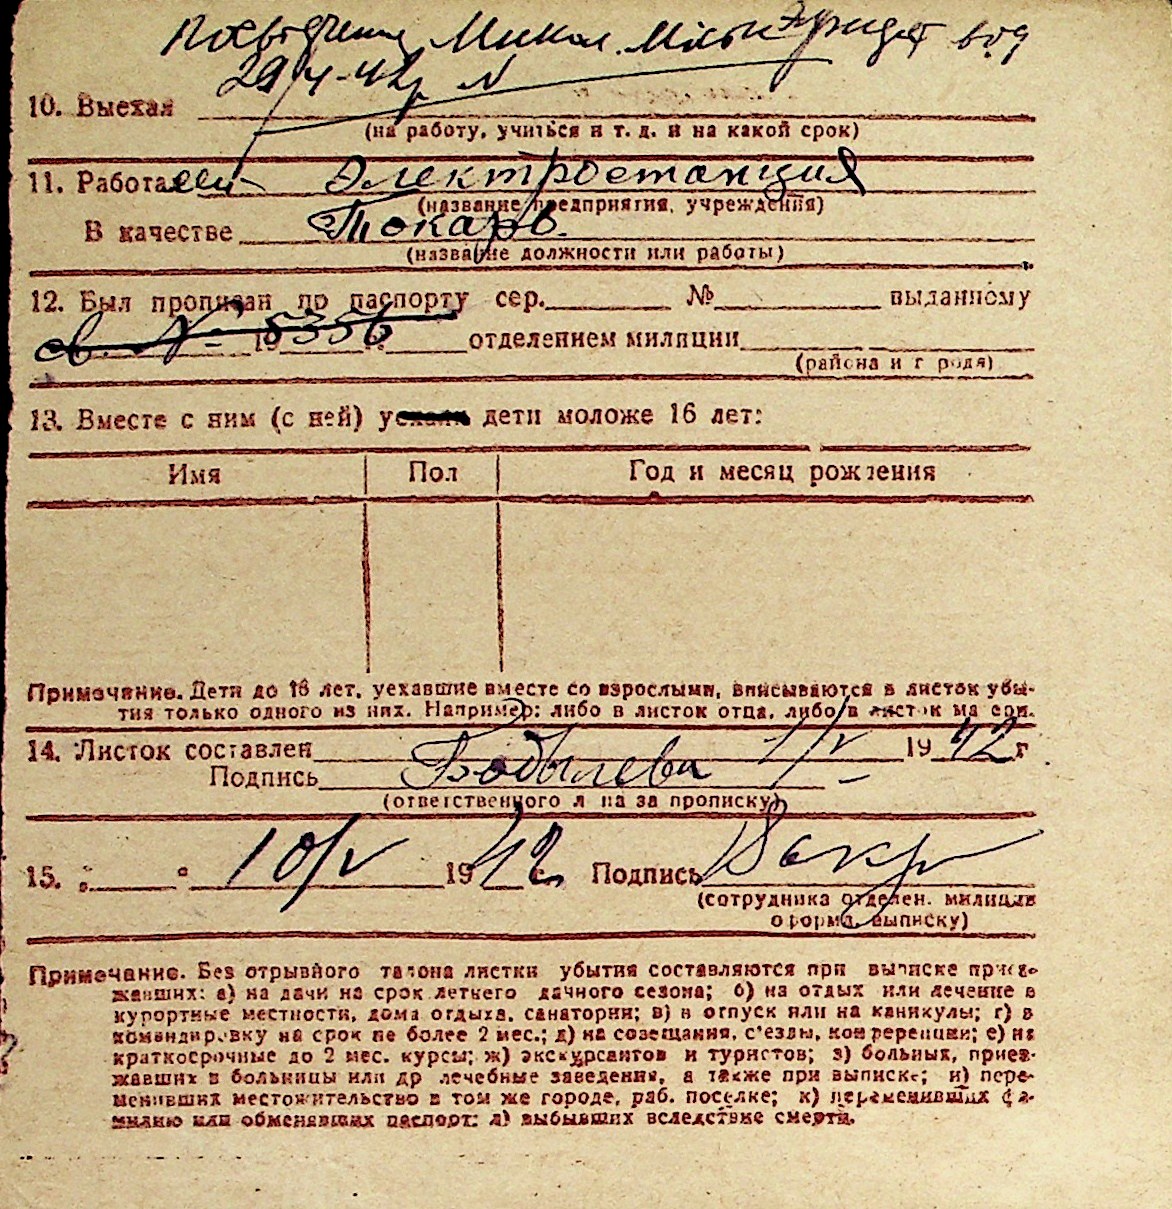 29/4-42 г
10. Выехал
(на работу, учиться и т. д. и на какой срок)
11. Работает Электростанция
(название предприятия, учреждения)
В качестве Токарь
(название должности или работы)
12. Был прописан по паспорту сер. № выданному
св. № 5356 19 отделением милиции
(района и города)
13. Вместе с ним (с ней) уехали дети моложе 16 лет:
Имя Пол Год и месяц рождения
Примечание. Дети до 16 лет, уехавшие вместе со взрослыми, вписываются в листок убы-
тия только одного из них. Например: либо в листок отца, либо в листок матери.
14. Листок составлен 1/V 1942 г
Подпись Бобылева
(ответственного лица за прописку)
15. " " 10/V 1942 г. Подпись
(сотрудника отделен. милиции
оформл. выписку)
Примечание. Без отрывного талона листки убытия составляются при выписке приез-
жавших: а) на дачи на срок летнего дачного сезона; б) на отдых или лечение в
курортные местности, дома отдыха, санатории; в) в отпуск или на каникулы; г) в
командировку на срок не более 2 мес.; д) на созещания, с'езды, конференции; е) на
краткосрочные до 2 мес. курсы; ж) экскурсантов и туристов; з) больных, приез-
жавших в больницы или др лечебные заведения, а также при выписке; и) пере-
менивших местожительство в том же городе, раб. поселке; к) переменивших фа-
милию или обменявших паспорт; л) выбывших вследствие смерти.